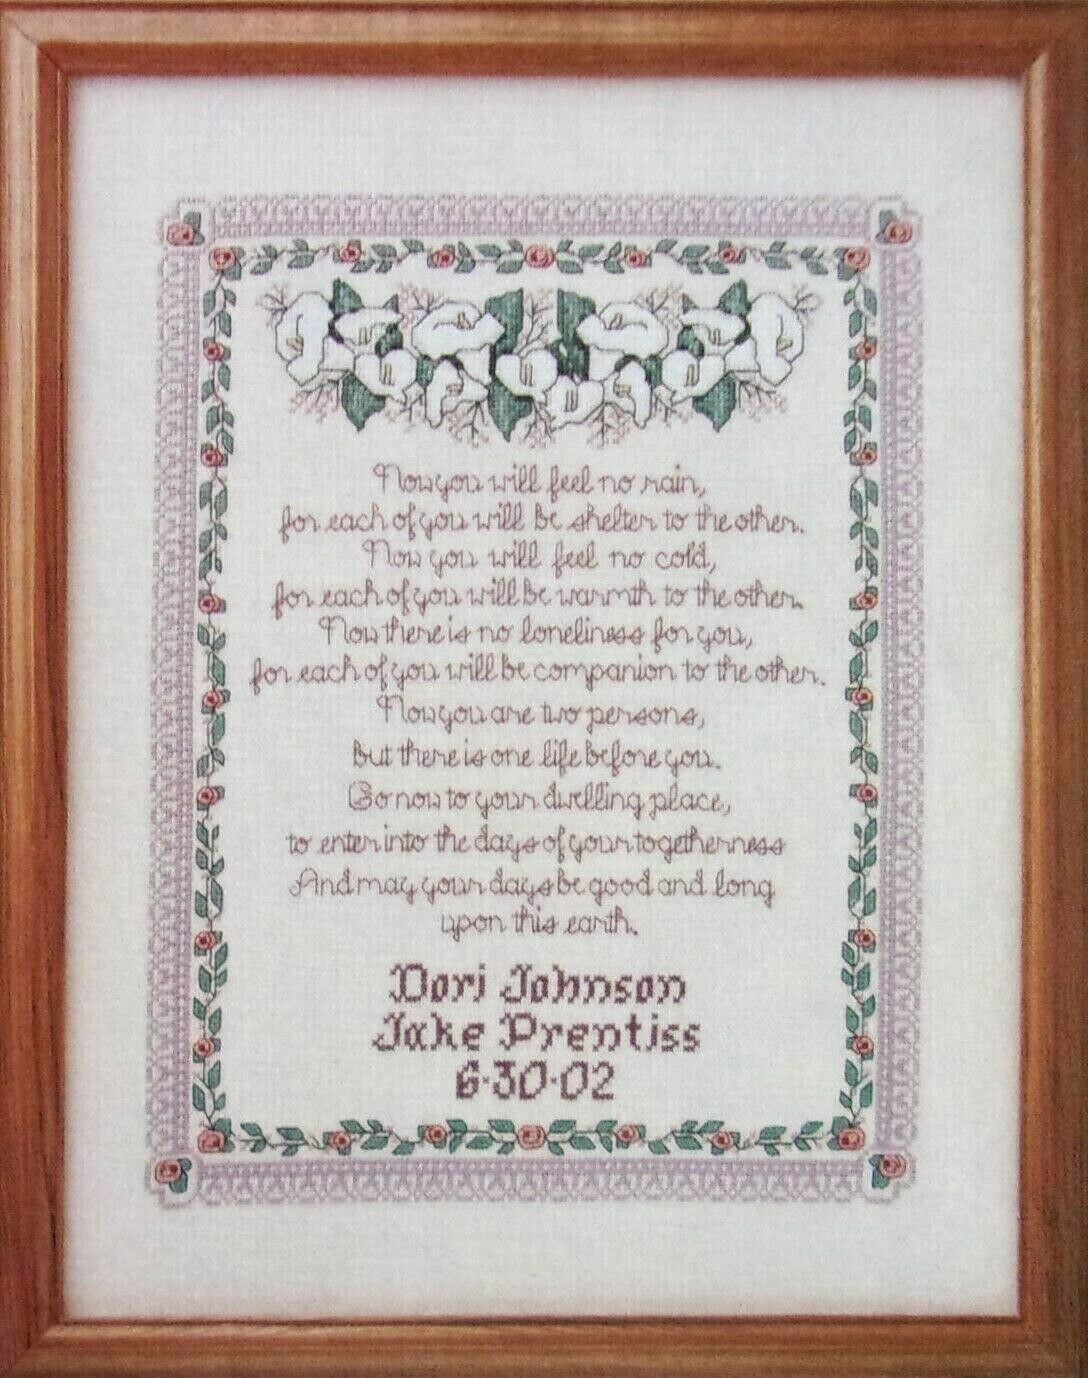 Now you will feel no rain,
for each of you will be shelter to the other.
Now you will feel no cold,
for each of you will be warmth to the other.
Now there is no loneliness for you,
for each of you will be companion to the other.
Now you are two persons,
but there is one life before you.
Go now to your dwelling place,
to enter into the days of your togetherness
And may your days be good and long
upon this earth.
Dori Johnson
Jake Prentiss
6·30·02